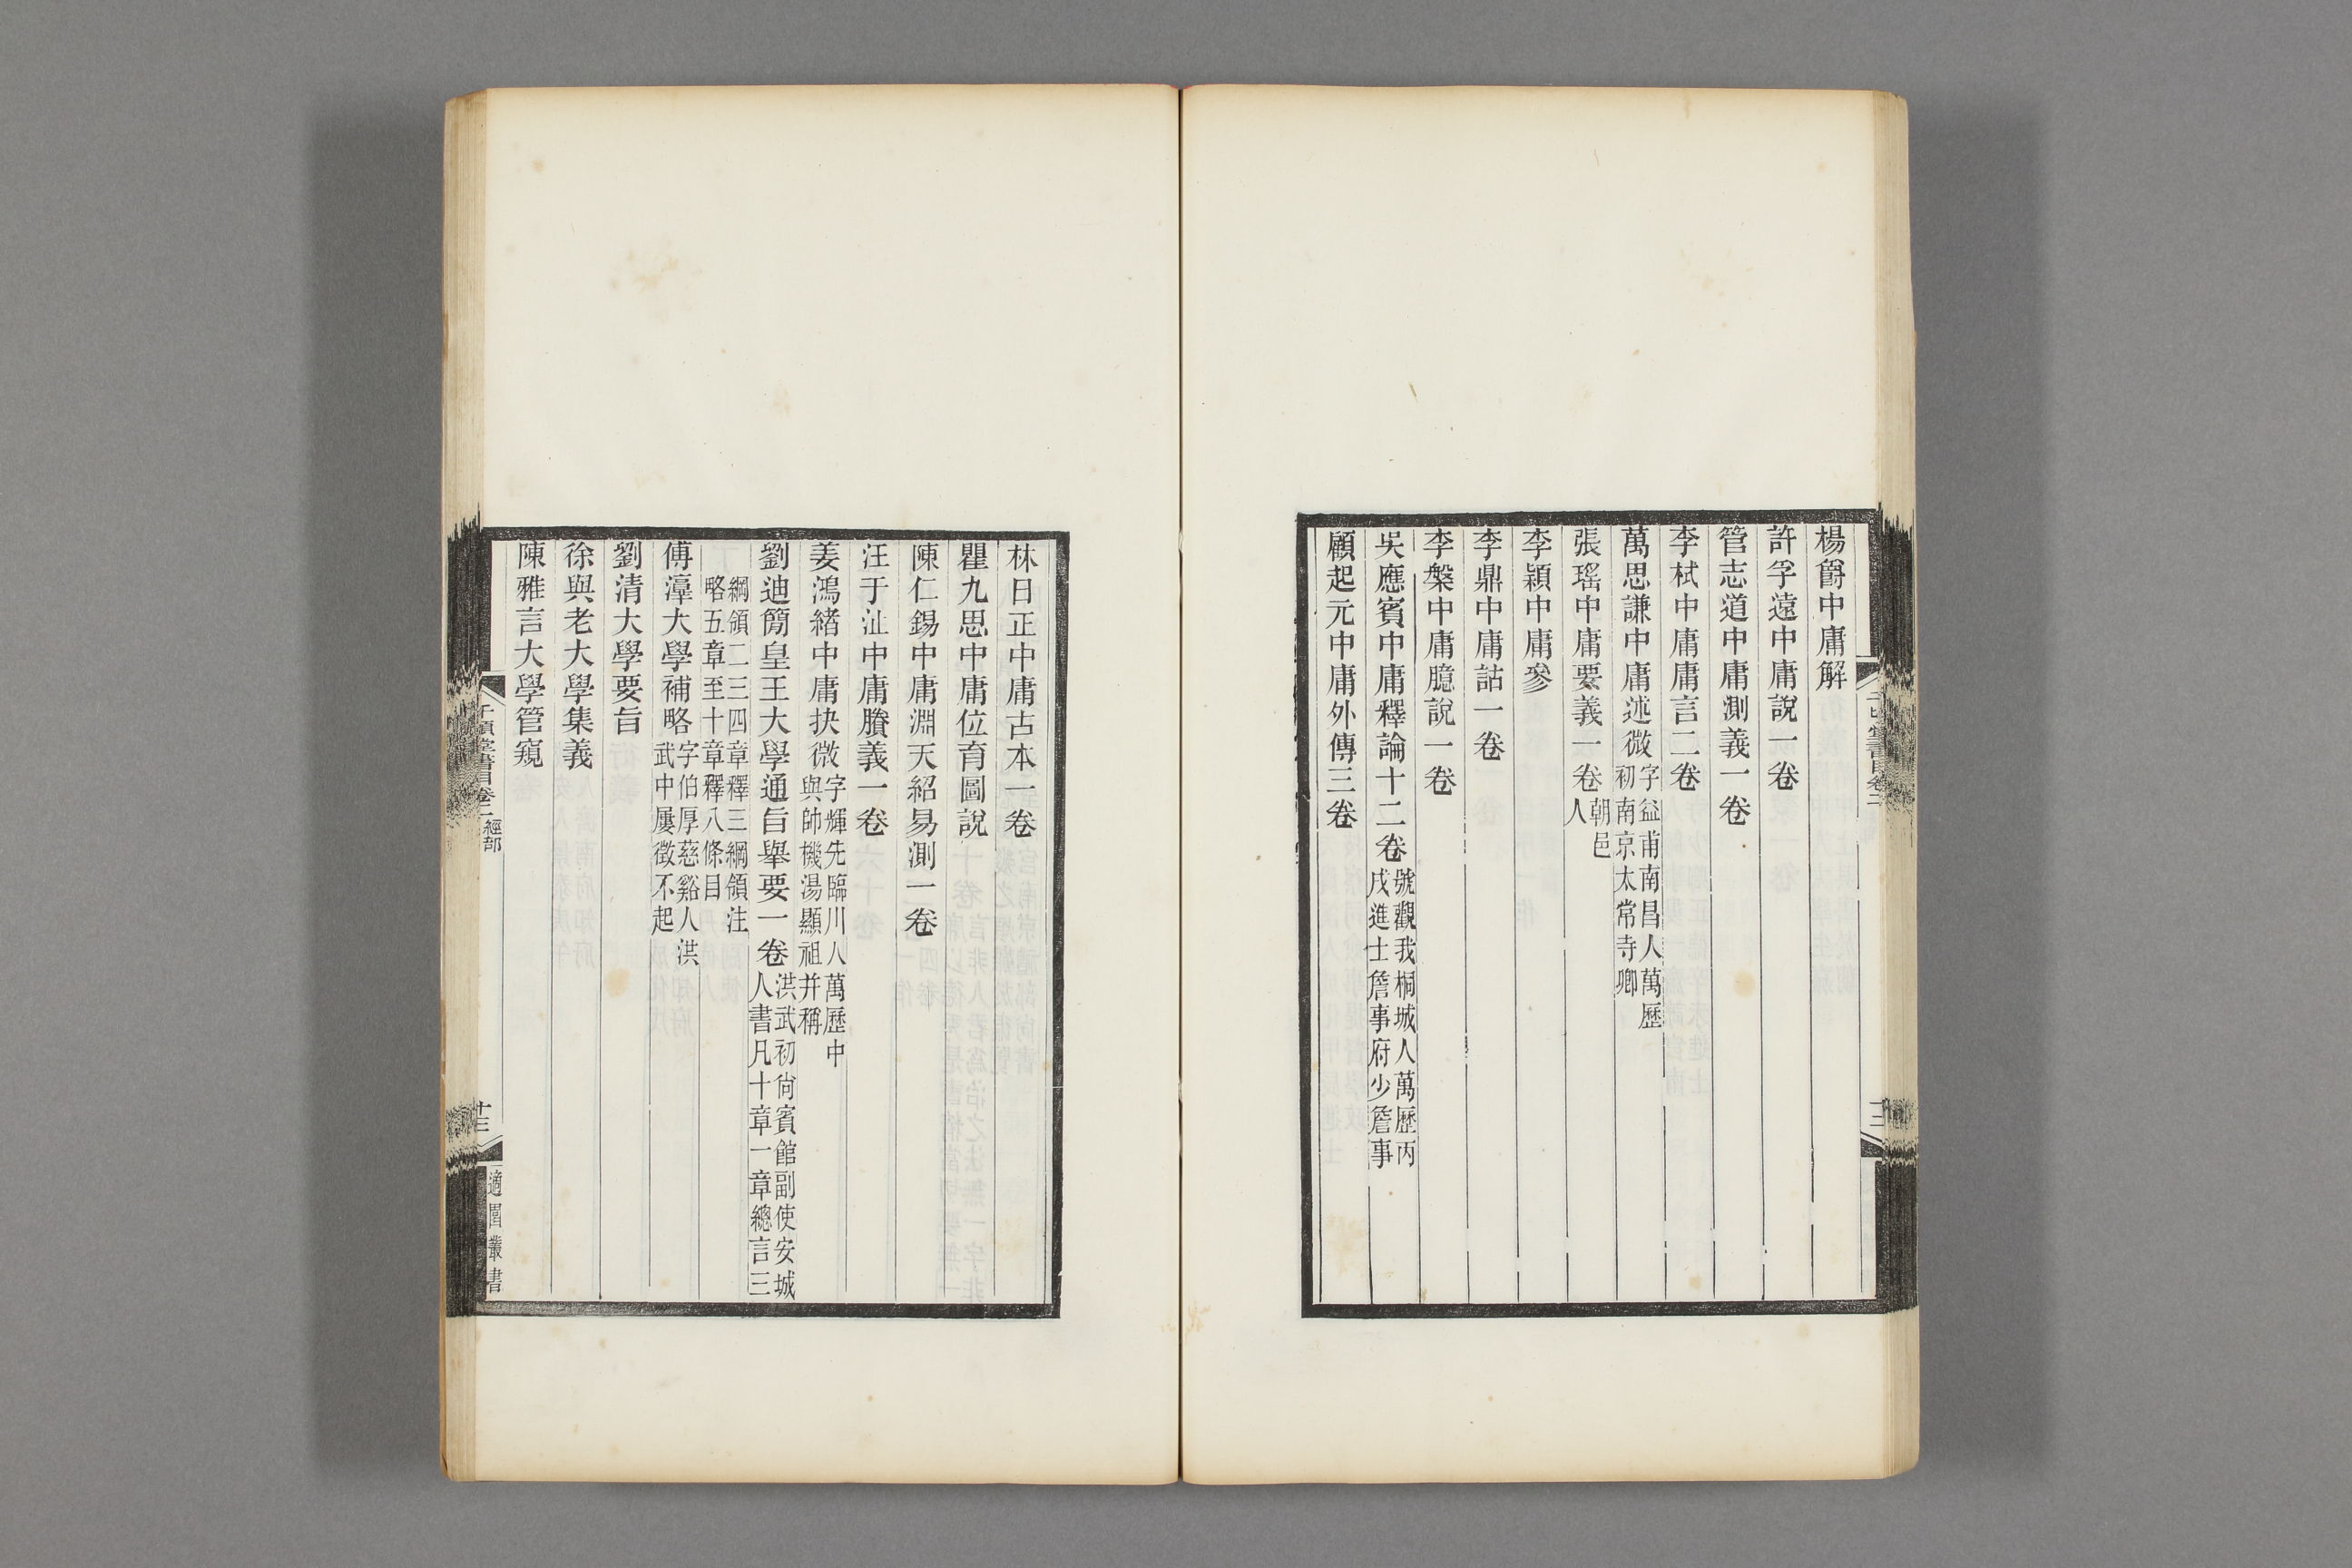 楊爵中庸解
許孚遠中庸說一卷
管志道中庸測義一卷
李栻中庸庸言二卷
萬思謙中庸述微字益甫南昌人萬歷
初南京太常寺卿
張瑤中庸要義一卷朝邑
人
李穎中庸參
李鼎中庸詁一卷
李槃中庸臆說一卷
吳應賓中庸釋論十二卷號觀我桐城人萬歷丙
戌進士詹事府少詹事
顧起元中庸外傳三卷
林日正中庸古本一卷
瞿九思中庸位育圖說
陳仁錫中庸淵天紹易測一卷
汪于沚中庸賸義一卷
姜鴻緒中庸抉微字耀先臨川人萬歷中
與帥機湯顯祖并稱
劉迪簡皇王大學通旨舉要一卷洪武初尙賓館副使安城
人書凡十章一章總言三
綱領二三四章釋三綱領注
略五章至十章釋八條目
傅淳大學補略字伯厚慈谿人洪
武中屢徵不起
劉清大學要旨
徐與老大學集義
陳雅言大學管窺
千頃堂書目卷二經部
十三
適園叢書